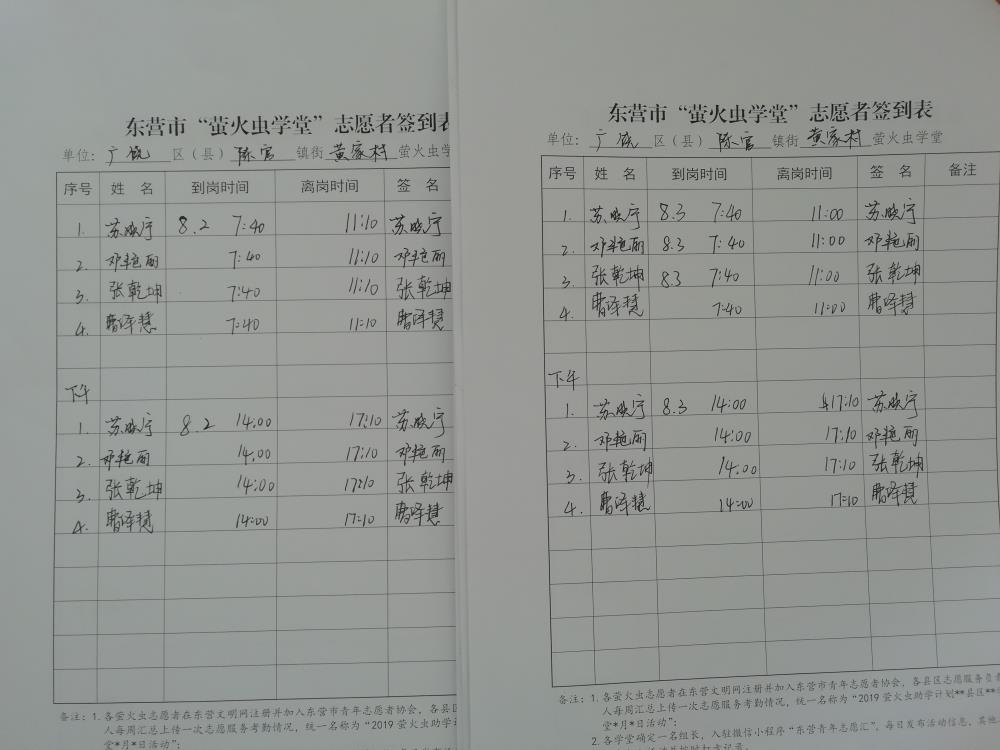 东营市“萤火虫学堂”志愿者签到表
单位: 广饶 区(县) 陈官 镇街 黄家村 萤火虫学
序号 姓 名 到岗时间 离岗时间 签 名
1. 苏晓宁 8.2 7:40 11:10 苏晓宁
2. 邓艳丽 7:40 11:10 邓艳丽
3. 张乾坤 7:40 11:10 张乾坤
4. 曹泽慧 7:40 11:10 曹泽慧
下午
1. 苏晓宁 8.2 14:00 17:10 苏晓宁
2. 邓艳丽 14:00 17:10 邓艳丽
3. 张乾坤 14:00 17:10 张乾坤
4. 曹泽慧 14:00 17:10 曹泽慧
备注: 1. 各萤火虫志愿者在东营文明网注册并加入东营市青年志愿者协会, 各县区
人每周汇总上传一次志愿服务考勤情况, 统一名称为“2019 萤火虫助学
堂*月*日活动”;
东营市“萤火虫学堂”志愿者签到表
单位: 广饶 区(县) 陈官 镇街 黄家村 萤火虫学堂
序号 姓 名 到岗时间 离岗时间 签 名 备注
1. 苏晓宁 8.3 7:40 11:00 苏晓宁
2. 邓艳丽 8.3 7:40 11:00 邓艳丽
3. 张乾坤 8.3 7:40 11:00 张乾坤
4. 曹泽慧 7:40 11:00 曹泽慧
下午
1. 苏晓宁 8.3 14:00 17:10 苏晓宁
2. 邓艳丽 14:00 17:10 邓艳丽
3. 张乾坤 14:00 17:10 张乾坤
4. 曹泽慧 14:00 17:10 曹泽慧
备注: 1. 各萤火虫志愿者在东营文明网注册并加入东营市青年志愿者协会, 各县区志愿服务负责
人每周汇总上传一次志愿服务考勤情况, 统一名称为“2019 萤火虫助学计划**县区**
堂*月*日活动”;
2. 各学堂确定一名组长, 入驻微信小程序“东营青年志愿汇”, 每日发布活动信息, 其他